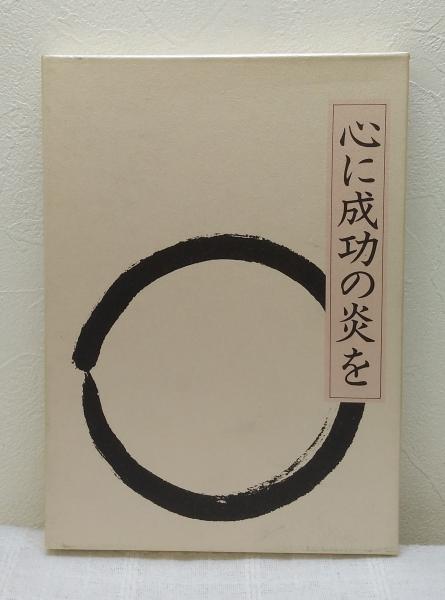 心に成功の炎を